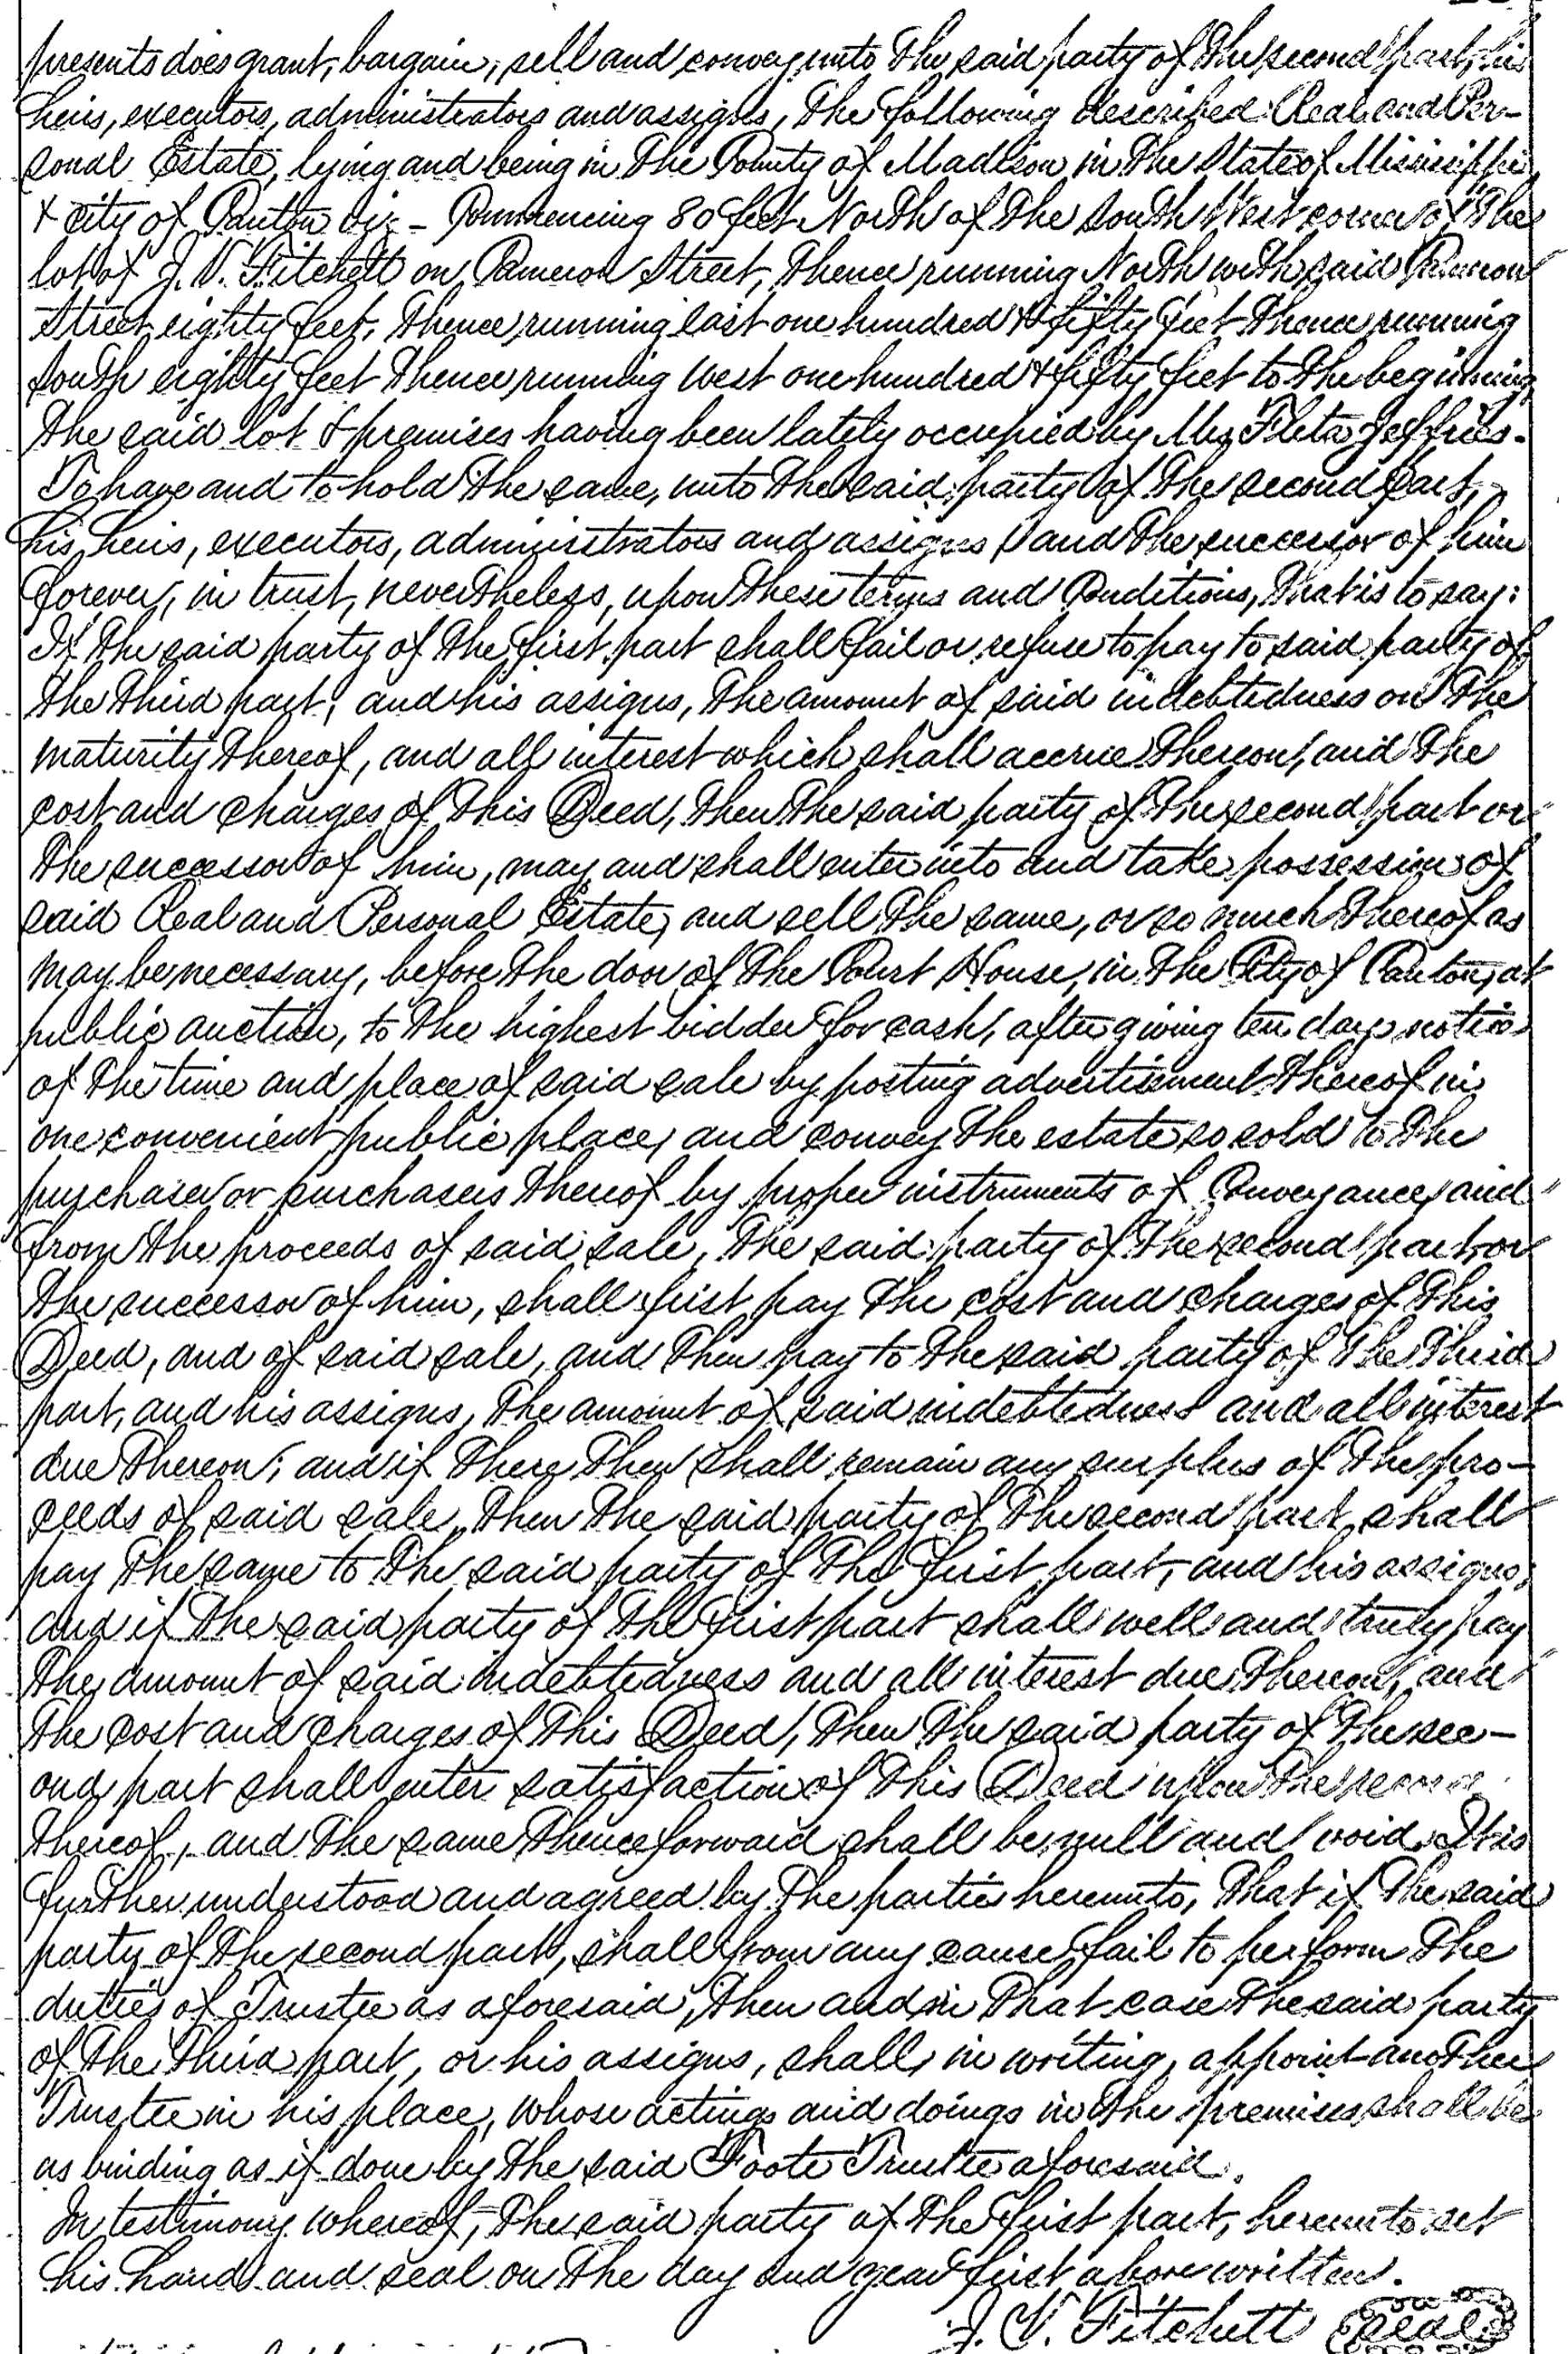 presents does grant, bargain, sell and convey unto the said party of the second part, his
heirs, executors, administrators and assigns, the following described Real and Per-
sonal Estate, lying and being in the County of Madison in the State of Mississippi
& city of Canton viz - Commencing 80 feet North of the South West corner of the
lot of J. V. Fitchett on Cameron Street, thence running North with said Cameron
Street eighty feet, thence running east one hundred & fifty feet thence running
south eighty feet thence running west one hundred & fifty feet to the beginning
the said lot & premises having been lately occupied by Mrs Fleta Jeffries.
To have and to hold the same, unto the said party of the second part,
his heirs, executors, administrators and assigns and the successor of him
forever, in trust, nevertheless, upon these terms and Conditions, that is to say:
If the said party of the first part shall fail or refuse to pay to said party of
the third part, and his assigns, the amount of said indebtedness on the
maturity thereof, and all interest which shall accrue thereon, and the
cost and charges of this Deed, then the said party of the second part or
the successor of him, may and shall enter into and take possession of
said Real and Personal Estate, and sell the same, or so much thereof as
may be necessary, before the door of the Court House, in the City of Canton, at
public auction, to the highest bidder for cash, after giving ten days notice
of the time and place of said sale by posting advertisement thereof in
one convenient public place, and convey the estate so sold to the
purchaser or purchasers thereof by proper instruments of Conveyance, and
from the proceeds of said sale, the said party of the second part, or
the successor of him, shall first pay the cost and charges of this
Deed, and of said sale, and then pay to the said party of the third
part, and his assigns, the amount of said indebtedness and all interest
due thereon; and if there then shall remain any surplus of the pro-
ceeds of said sale, then the said party of the second part shall
pay the same to the said party of the first part, and his assigns,
and if the said party of the first part shall well and truly pay
the amount of said indebtedness and all interest due thereon, and
the cost and charges of this Deed, then the said party of the sec-
ond part shall enter satisfaction of this Deed upon the record
thereof, and the same thenceforward shall be null and void. It is
further understood and agreed by the parties hereunto, that if the said
party of the second part, shall from any cause fail to perform the
duties of Trustee as aforesaid, then and in that case the said party
of the third part, or his assigns, shall, in writing, appoint another
Trustee in his place, whose actings and doings in the premises shall be
as binding as if done by the said Foote Trustee aforesaid.
In testimony whereof, the said party of the first part, hereunto set
his hand and seal on the day and year first above written.
J. V. Fitchett seal